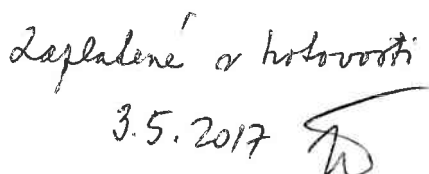 Zaplatené v hotovosti
3.5.2017